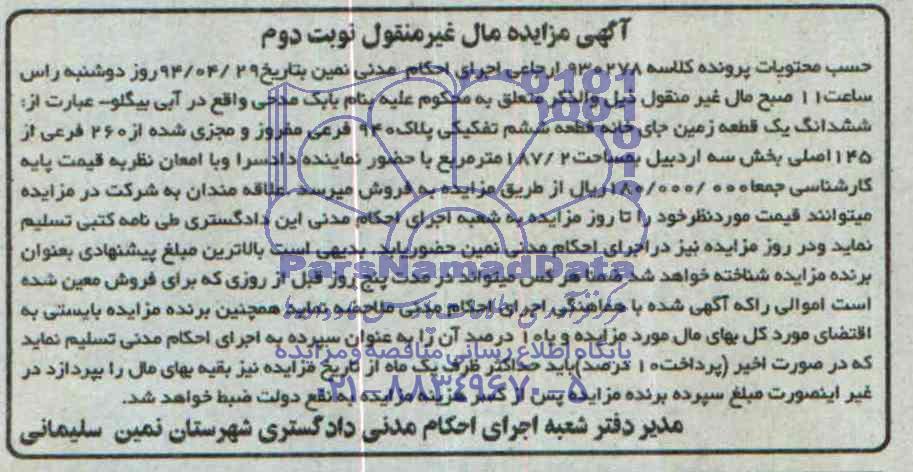 آگهی مزایده مال غیرمنقول نوبت دوم
حسب محتویات پرونده کلاسه ۹۳۰۲۷۸ ارجاعی اجرای احکام مدنی نمین بتاریخ ۹۴/۰۴/۲۹ روز دوشنبه راس
ساعت ۱۱ صبح مال غیر منقول ذیل والذکر متعلق به محکوم علیه بنام بابک مدحی واقع در آبی بیگلو- عبارت از:
ششدانگ یک قطعه زمین جای خانه قطعه ششم تفکیکی پلاک ۹۴۰ فرعی مفروز و مجزی شده از ۲۶۰ فرعی از
۱۴۵ اصلی بخش سه اردبیل بمساحت ۱۸۷/۲ مترمربع با حضور نماینده دادسرا وبا امعان نظربه قیمت پایه
کارشناسی جمعا ۱۸۰/۰۰۰/۰۰۰ ریال از طریق مزایده به فروش میرسد. علاقه مندان به شرکت در مزایده
میتوانند قیمت موردنظرخود را تا روز مزایده به شعبه اجرای احکام مدنی این دادگستری طی نامه کتبی تسلیم
نماید ودر روز مزایده نیز دراجرای احکام مدنی نمین حضوریابد. بدیهی است بالاترین مبلغ پیشنهادی بعنوان
برنده مزایده شناخته خواهد شد ضمنا هر کس میتواند در مدت پنج روز قبل از روزی که برای فروش معین شده
است اموالی راکه آگهی شده با هماهنگی اجرای احکام مدنی ملاحظه نماید همچنین برنده مزایده بایستی به
اقتضای مورد کل بهای مال مورد مزایده و یا ۱۰ درصد آن را به عنوان سپرده به اجرای احکام مدنی تسلیم نماید
که در صورت اخیر (پرداخت ۱۰ درصد) باید حداکثر ظرف یک ماه از تاریخ مزایده نیز بقیه بهای مال را بپردازد در
غیر اینصورت مبلغ سپرده برنده مزایده پس از کسر هزینه مزایده به نفع دولت ضبط خواهد شد.
مدیر دفتر شعبه اجرای احکام مدنی دادگستری شهرستان نمین سلیمانی
ParsNamadData
پایگاه اطلاع رسانی مناقصه و مزایده
۰۲۱-۸۸۳۴۹۶۷۰-۵